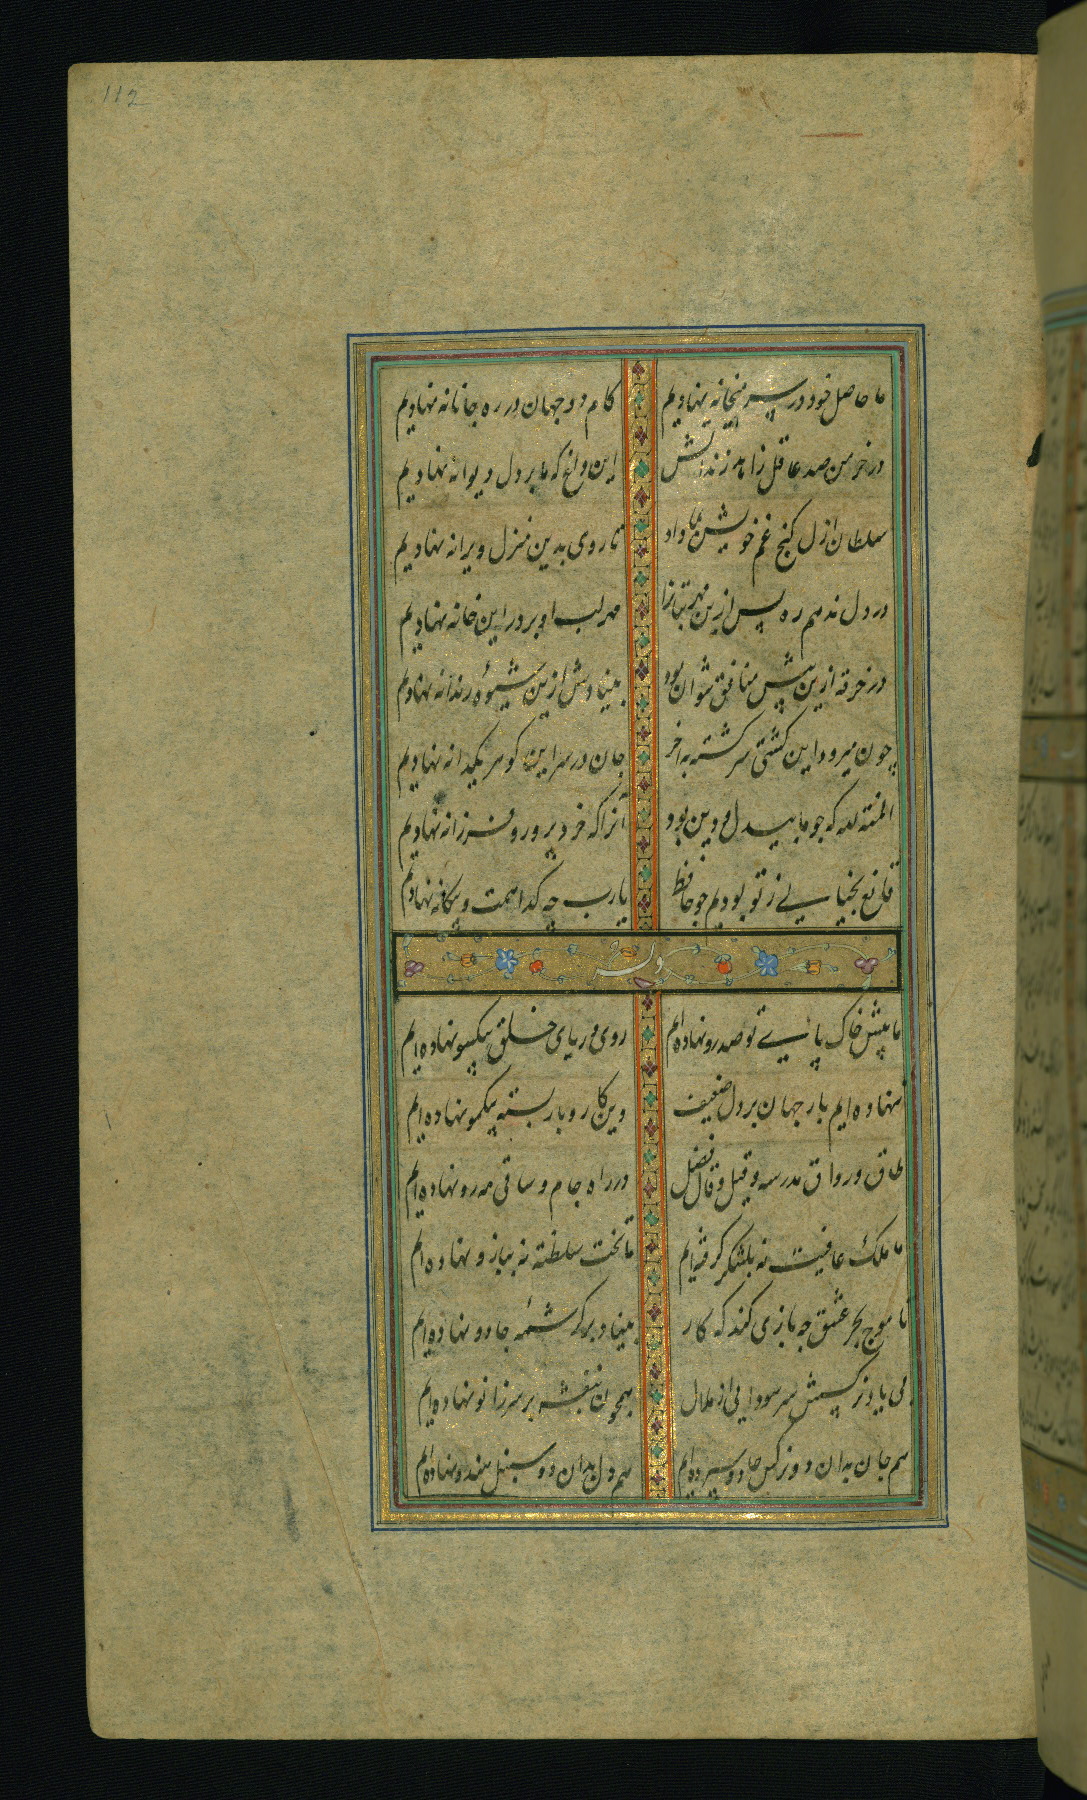 112
ما حاصل خود در سر میخانه نهادیم
کام دو جهان در ره جانانه نهادیم
در خرمن صد عاقل زاهد زند آتش
این داغ که ما بر دل دیوانه نهادیم
سلطان ازل کنج غم خویش بما داد
تا روی بدین منزل ویرانه نهادیم
در دل ندهم ره پس ازین مهر بتانرا
مهر لب او بر در این خانه نهادیم
در خرقه ازین بیش منافق نتوان بود
بنیادش ازین شیوۀ رندانه نهادیم
چون میرود این کشتی سرکشته به آخر
جان در سر این کوهر یکدانه نهادیم
المنته لله که جو ما بیدل و دین بود
آنرا که خرد پرور و فرزانه نهادیم
قانع بخیالی ز تو بودیم جو حافظ
یارب چه کدا همت و بیکانه نهادیم
وله
ما پیش خاک پای تو صد رو نهاده‌ایم
روی و ریای خلق بیکسو نهاده‌ایم
ننهاده‌ایم بار جهان بر دل ضعیف
وین کار و بار بسته بیکمو نهاده‌ایم
طاق و رواق مدرسه و قیل و قال فضل
در راه جام و ساقی مه رو نهاده‌ایم
ما ملک عافیت نه بلشکر کرفته‌ایم
ما تخت سلطنه نه ببازو نهاده‌ایم
تا موج بحر عشق جه بازی کند که کار
بنیاد بر کرشمه جادو نهاده‌ایم
بی یاد نرکسش سر سودایی از ملال
همچون بنفشه بر سر زانو نهاده‌ایم
هم جان بدان دو نرکس جادو سپرده‌ایم
هم دل بدان دو سنبل هندو نهاده‌ایم